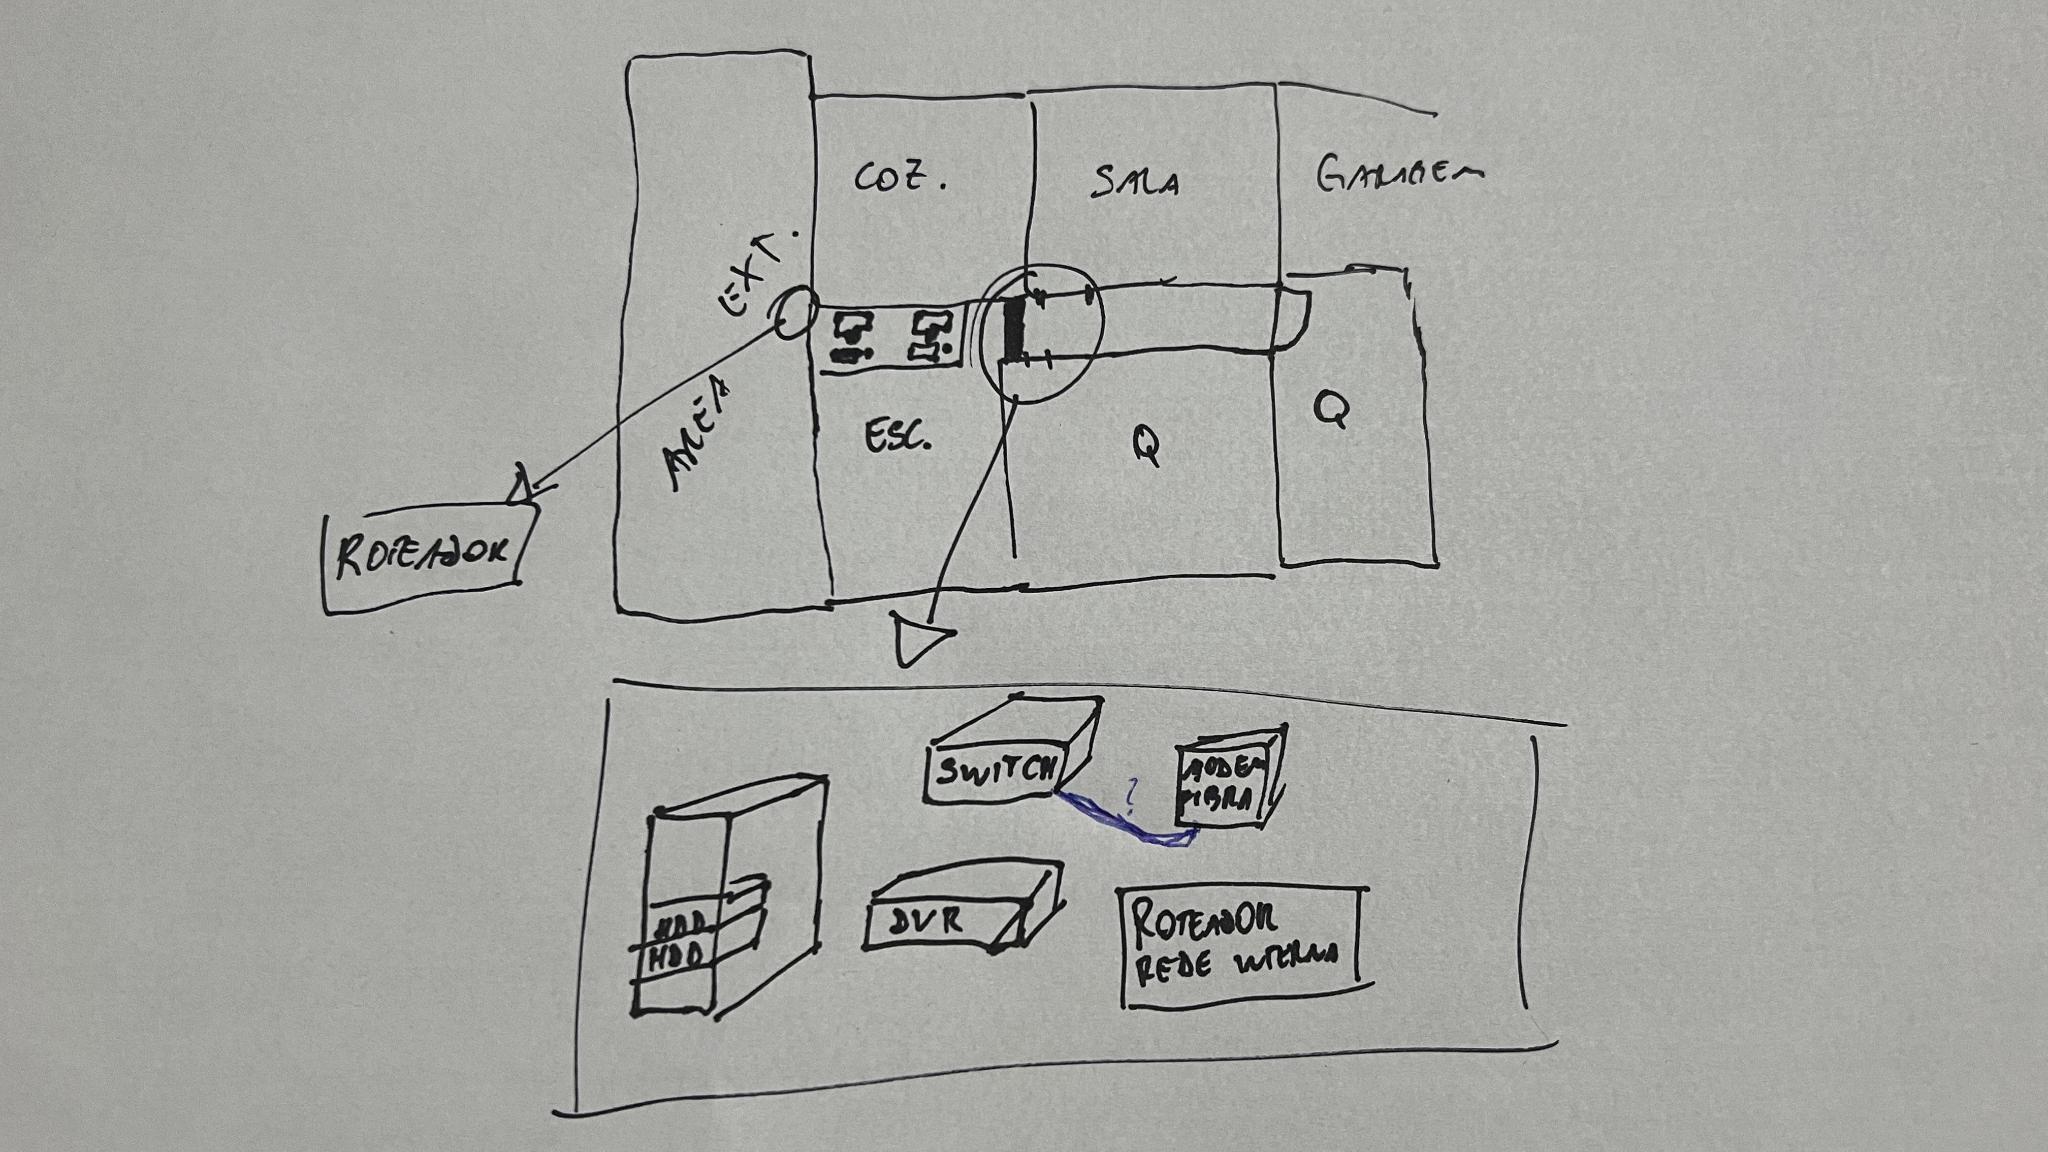 COZ.
SALA
GARAGEM
ÁREA EXT.
ESC.
Q
Q
ROTEADOR
SWITCH
?
MODEM
FIBRA
HDD
HDD
DVR
ROTEADOR
REDE INTERNA